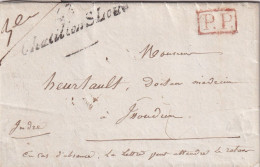 Châtillon S Loire
P.P.
Monsieur
heurtault, Docteur médecin
à Issoudun
Indre
En cas d'absence, la lettre peut attendre le retour